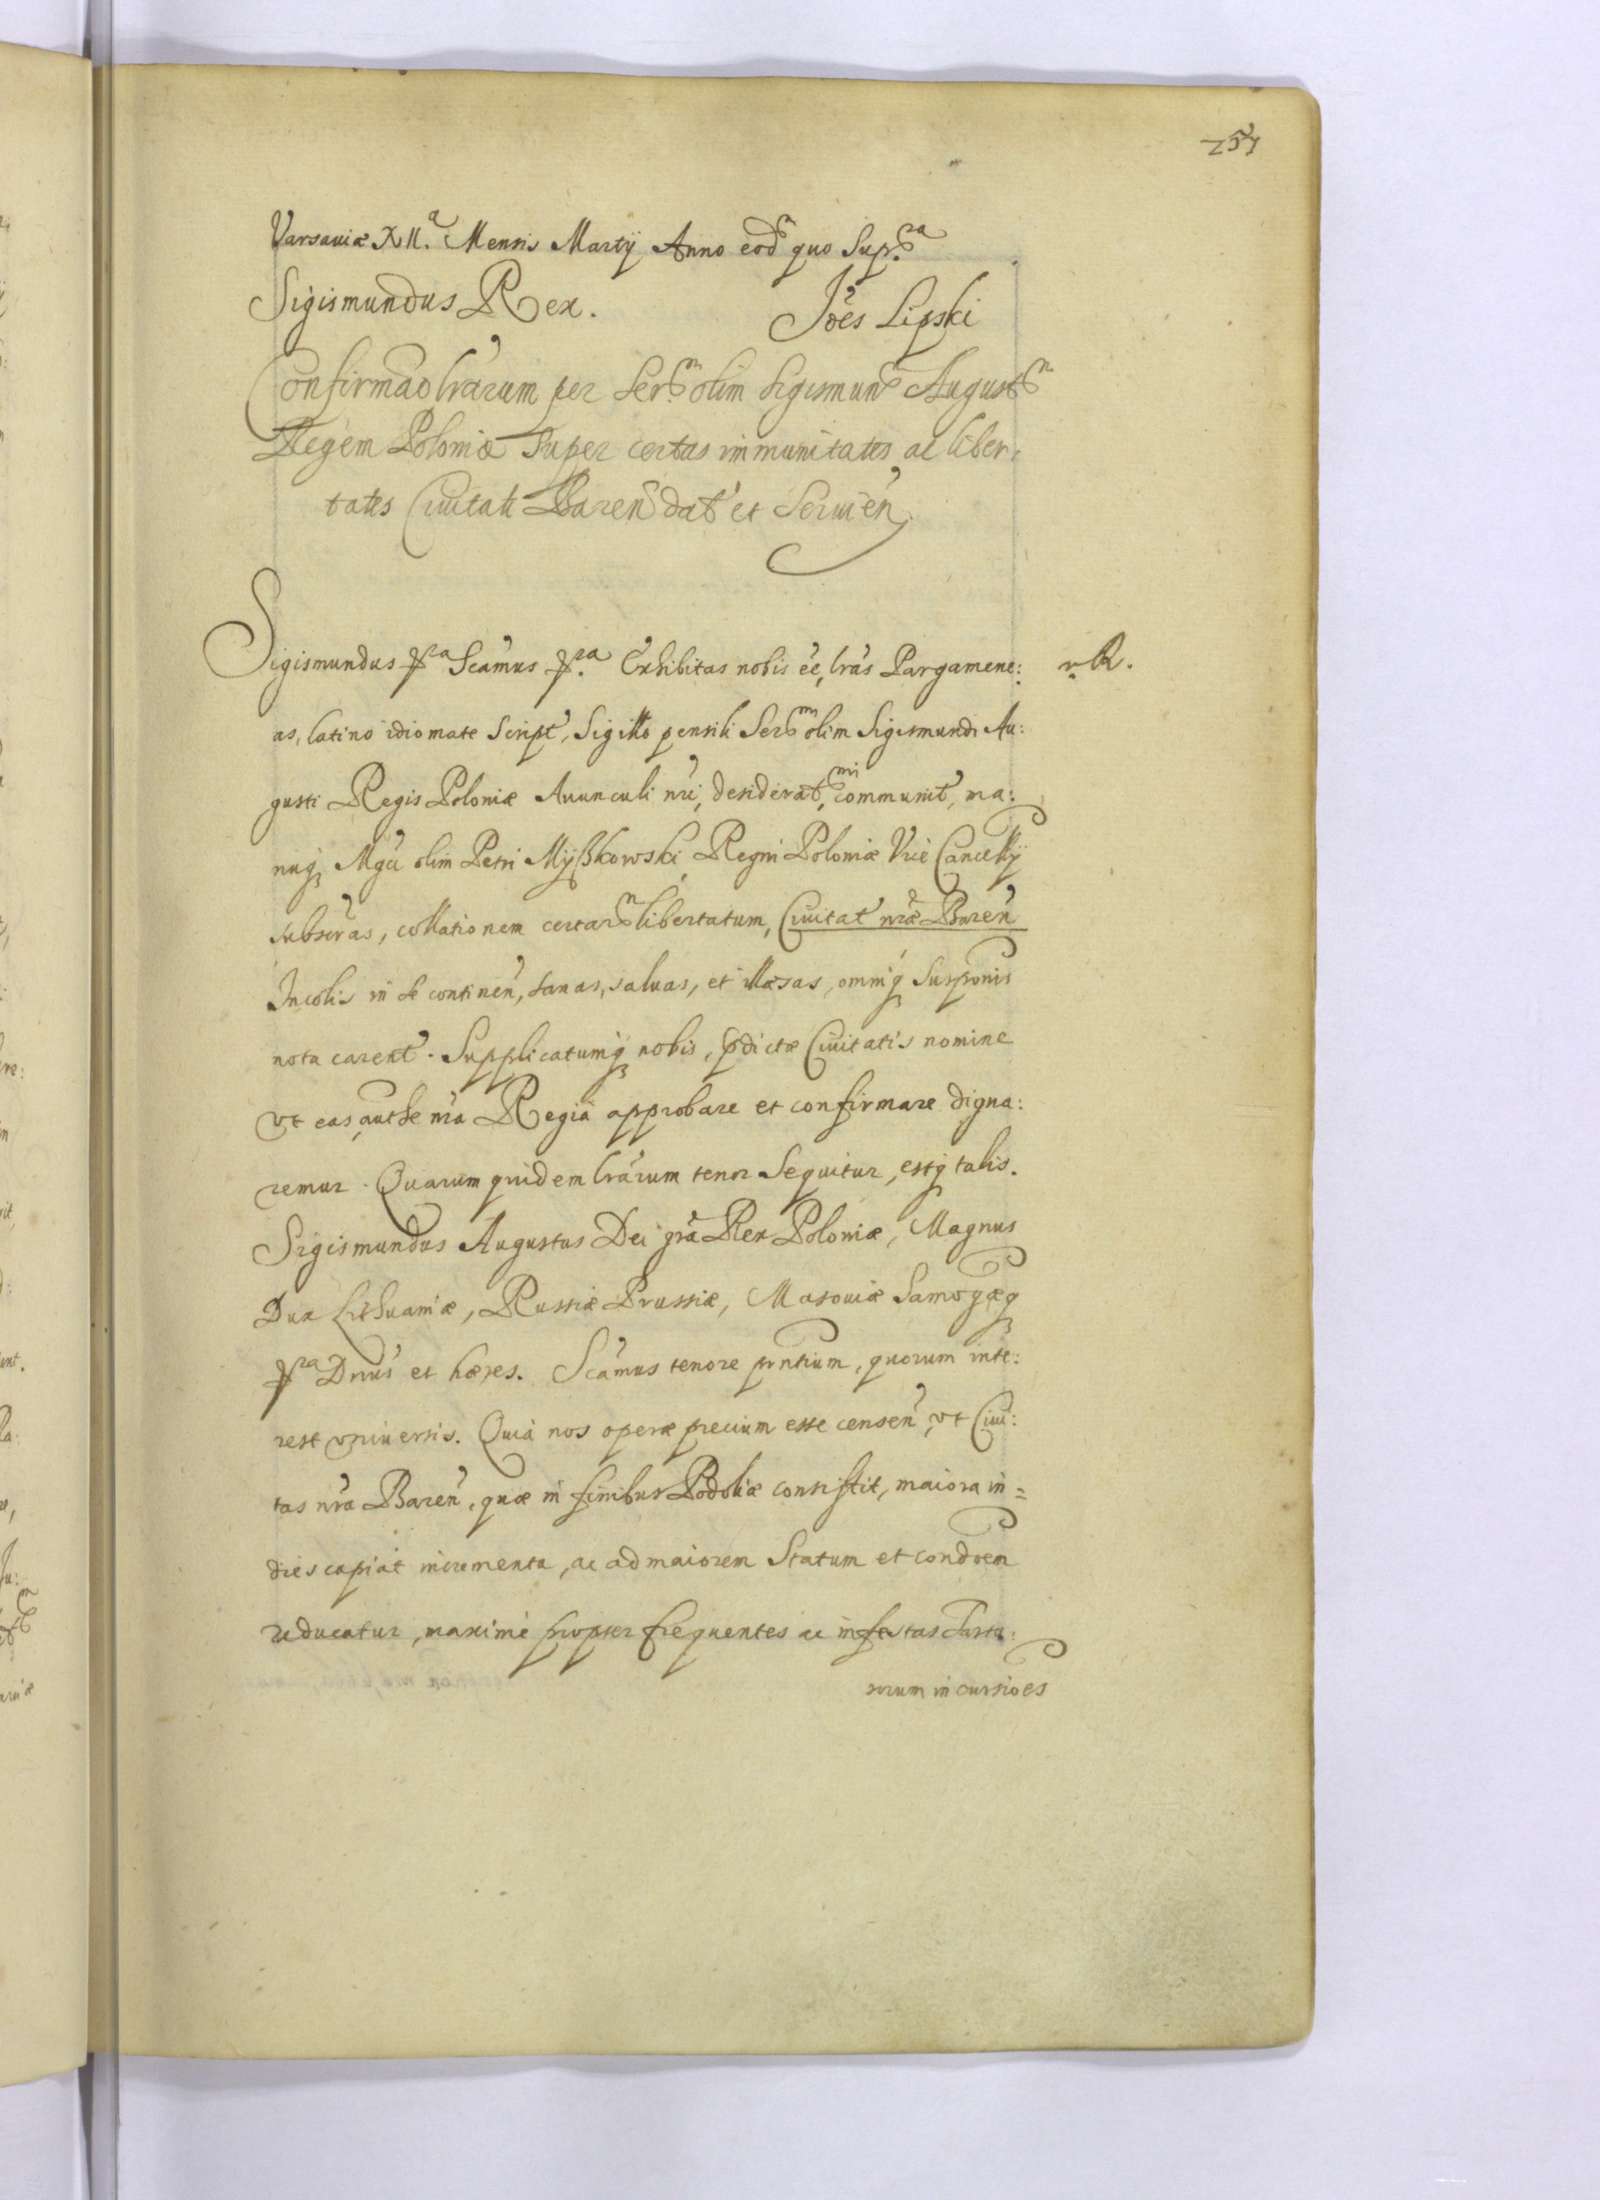 257
Varsaviæ XII.a Mensis Martÿ Anno eod quo Supra
Sigismundus Rex. Joes Lipski
Confirmao lrarum per Serm olim Sigismun August
Regem Poloniæ Super certas immunitates ac liber,
tates Civitati Baren dat et Servien
Sigismundus pra Scamus pra. Exhibitas nobis ee, lras Pargamene: R.
as, latino idiomate Script, Sigillo pensili Serm olim Sigismundi Au:
gusti Regis Poloniæ Avunculi nri, desideratmi, communit, ma:
nuq, Mgci olim Petri Myßkowski, Regni Poloniæ Vice Cancellÿ
subscras, collationem certarm libertatum, Civitat nræ Baren
Incolis in se continen, sanas, salvas, et illæsas, omniq Suspónis
nota carent. Supplicatumq nobis, pdictæ Civitatis nomine
vt eas authe nra Regia approbare et confirmare digna:
remur. Quarum quidem lrarum tenor Sequitur, estq talis.
Sigismundus Augustus Dei gra Rex Poloniæ, Magnus
Dux Lithuaniæ, Russiæ Prussiæ, Masoviæ Samogæq
pra Dnus et hæres. Scamus tenore pntium, quorum inte:
rest vniversis. Quia nos operæ precium esse censen, vt Civi:
tas nra Baren, quæ in finibus Podoliæ consistit, maiora in=
dies capiat incrementa, ac ad maiorem Statum et condoem
reducatur, maxime propter frequentes ac infestas Tarta:
rorum incursioes